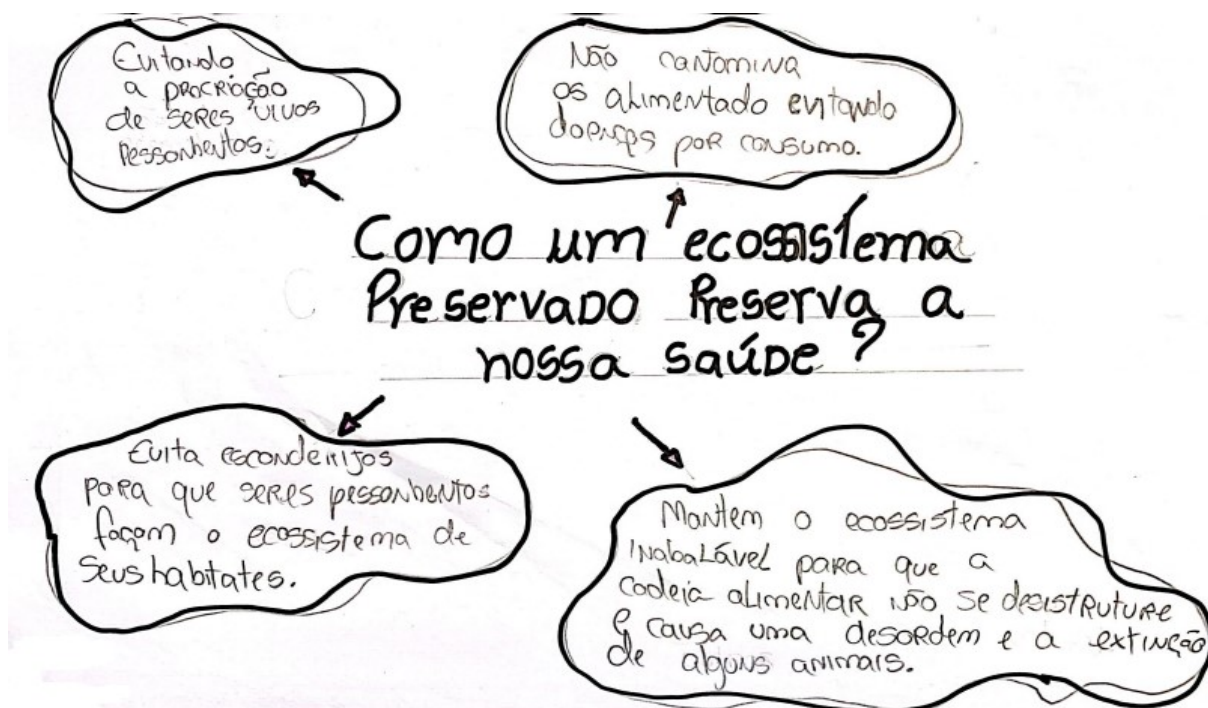 Evitando
a procriação
de seres vivos
Pessonhentos.
Não contamina
os alimentado evitando
doenças por consumo.
Como um ecossistema
Preservado Preserva a
nossa saúde?
Evita esconderijos
para que seres pessonhentos
façam o ecossistema de
seus habitates.
Mantem o ecossistema
inabalável para que a
cadeia alimentar não se desistruture
e causa uma desordem e a extinção
de alguns animais.